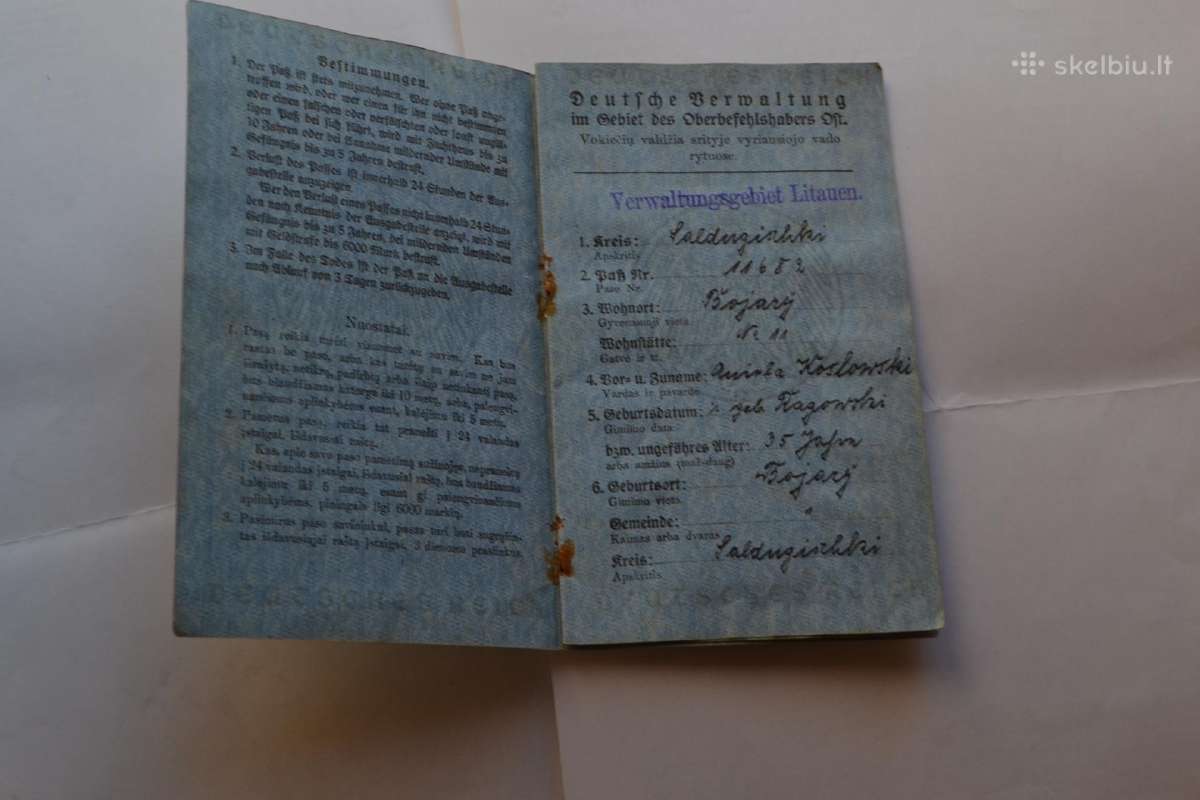 Bestimmungen.
1. Der Paß ist stets mitzunehmen. Wer ohne Paß ange-
troffen wird, oder wer einen für ihn nicht bestimmten
oder einen falschen oder verfälschten oder sonst ungül-
tigen Paß bei sich führt, wird mit Zuchthaus bis zu
10 Jahren oder bei Annahme mildernder Umstände mit
Gefängnis bis zu 5 Jahren bestraft.
2. Verlust des Passes ist innerhalb 24 Stunden der Aus-
gabestelle anzuzeigen.
Wer den Verlust eines Passes nicht innerhalb 24 Stun-
den nach Kenntnis der Ausgabestelle anzeigt, wird mit
Gefängnis bis zu 5 Jahren, bei mildernden Umständen
mit Geldstrafe bis 6000 Mark bestraft.
3. Im Falle des Todes ist der Paß an die Ausgabestelle
nach Ablauf von 3 Tagen zurückzugeben.
Nuostatai.
1. Pasą reikia turėti visuomet su savim. Kas bus
rastas be paso, arba kas turės su savim ne jam
išrašytą, netikrą, padirbtą arba šiaip netinkantį pasą,
bus baudžiamas katorga iki 10 metų, arba, palengvi-
namoms aplinkybėms esant, kalėjimu iki 5 metų.
2. Pametus pasą, reikia tat pranešti į 24 valandas
įstaigai, išdavusiai pasą.
Kas, apie savo paso pametimą sužinojęs, nepraneš
į 24 valandas įstaigai, išdavusiai raštą, bus baudžiamas
kalėjimu iki 5 metų, esant gi palengvinančioms
aplinkybėms, pinigais ligi 6000 markių.
3. Pasimirus paso savininkui, pasas turi būti sugrąžin-
tas išdavusiajai raštą įstaigai, 3 dienoms praslinkus.
DEUTSCHES REICH
Deutsche Verwaltung
im Gebiet des Oberbefehlshabers Ost.
Vokiečių valdžia srityje vyriausiojo vado
rytuose.
Verwaltungsgebiet Litauen.
1. Kreis: Saldugischki
Apskritis
2. Paß Nr. 11682
Paso Nr.
3. Wohnort: Bojary
Gyvenamoji vieta
Wohnstätte: Nr 11
Gatvė ir tr.
4. Vor- u. Zuname: Aniela Koslowski
Vardas ir pavardė
5. Geburtsdatum: geb. Ragowski
Gimimo data
bzw. ungefähres Alter: 35 Jahre
arba amžius (maždaug)
6. Geburtsort: Bojary
Gimimo vieta
Gemeinde: "
Kaimas arba dvaras
Kreis: Saldugischki
Apskritis
skelbiu.lt